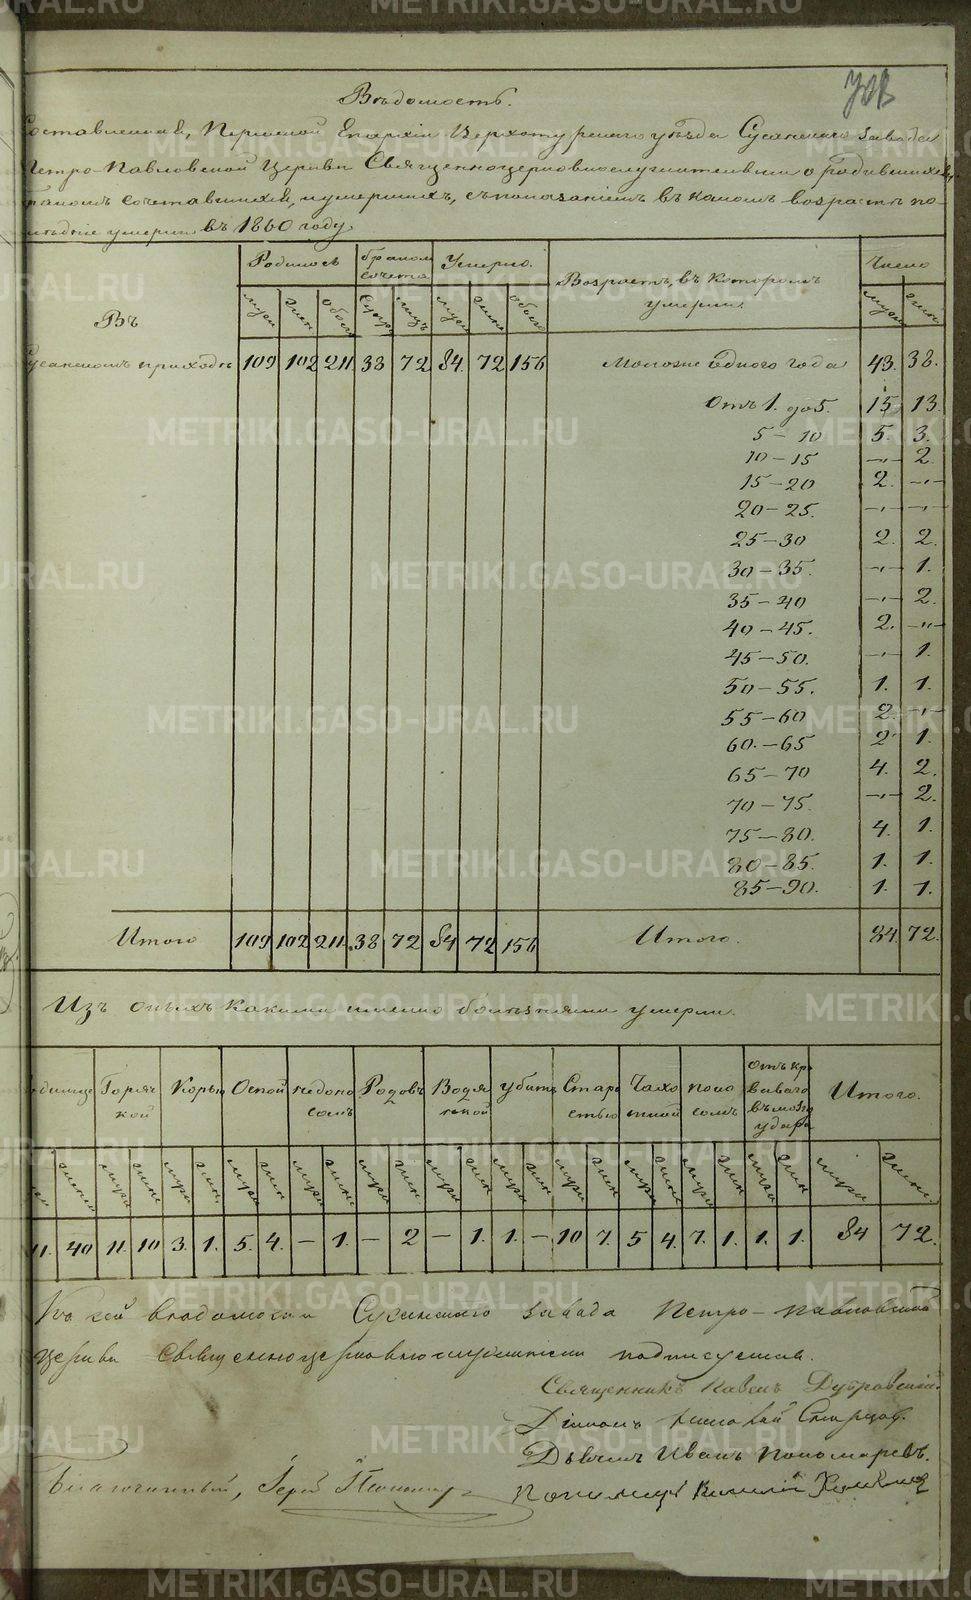 Вѣдомость.
Составленная, Пермской Епархіи Верхотурскаго уѣзда Сусанскаго завода
Петро-Павловской Церкви Священноцерковнослужителями о родившихся,
бракомъ сочетавшихся, и умершихъ, съ показаніемъ въ какомъ возрастѣ по-
слѣдніе умерли въ 1860 году.
Въ Родилось бракомъ сочета Умерло. Возрастъ, въ которомъ умерли Число
муж жен Обоего Супру лицъ муж жен обоего муж жен
Сусанскомъ приходѣ 109 102 211. 38 72 84. 72 156 Моложе одного года 43. 38.
Отъ 1. до 5. 15 13.
5 – 10 5. 3.
10 – 15 –„– 2.
15 – 20 2. –„–
20 – 25. –„– –„–
25 – 30 2. 2.
30 – 35. –„– 1.
35 – 40 –„– 2.
40 – 45. 2. –„–
45 – 50. –„– 1.
50 – 55. 1. 1.
55 – 60 2. –„–
60. – 65 2 1.
65 – 70 4. 2.
70 – 75. –„– 2.
75 – 80. 4. 1.
80 – 85. 1. 1.
85 – 90. 1. 1.
Итого 109 102 211. 38 72 84 72 156 Итого. 84 72.
Изъ оныхъ какими именно болѣзнями умерли.
Горяч кой Корью Оспой недоно сомъ Родовъ Водя ькой убитъ Старо стью Чахо ткой поно сомъ Отъ кро ваваго въ мозгъ удара Итого.
жен муж жен муж жен муж жен муж жен муж жен муж жен муж жен муж жен муж жен муж жен муж жен муж жен.
11. 40 11. 10 3. 1. 5. 4. – 1. – 2 – 1. 1. – 10 7. 5 4. 7. 1. 1. 1. 84 72.
Къ сей вѣдомости Сусанскаго завода Петро-Павловской
Церкви Священноцерковнослужители подписуемся.
Священникъ Павелъ Дубровскій.
Діаконъ
Дьячекъ Иванъ Пономаревъ.
Благочинный, Іерей
Пономарь Василій
METRIKI.GASO-URAL.RU